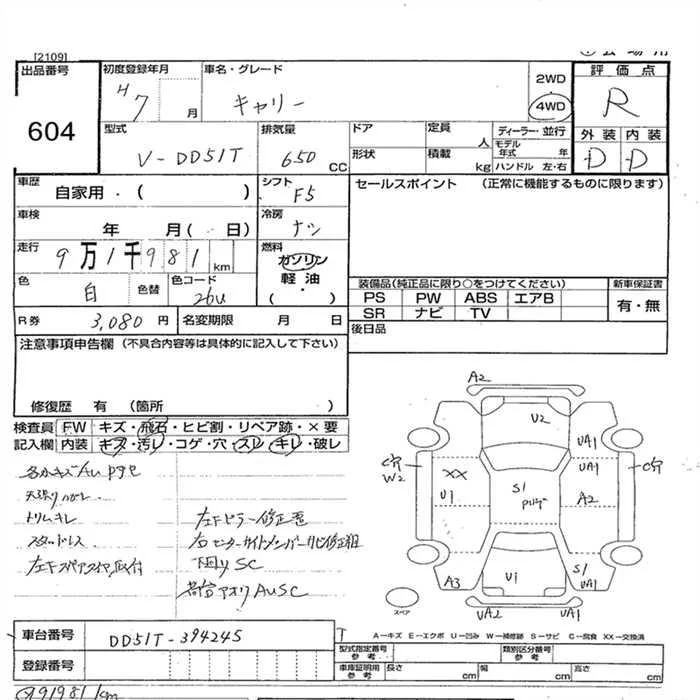 [2109]
出品番号
604
初度登録年月
H7 月
車名・グレード
キャリー
2WD
4WD
評価点
R
外装 内装
D D
型式
V-DD51T
排気量
650 CC
ドア
定員 人
ディーラー・並行
モデル年式 年
形状
積載 kg
ハンドル 左・右
車歴
自家用・( )
シフト
F5
セールスポイント (正常に機能するものに限ります)
車検
年 月( 日)
冷房
ナシ
走行
9万1千981km
燃料
ガソリン
軽油・
( )
色
白
色替
色コード
26U
装備品(純正品に限り○をつけてください)
新車保証書
PS PW ABS エアB
有・無
SR ナビ TV
R券 3,080円
名変期限 月 日
後日品
注意事項申告欄 (不具合内容等は具体的に記入して下さい)
修復歴 有 (箇所 )
検査員記入欄
FW キズ・飛石・ヒビ割・リペア跡・×要
内装 キズ・汚レ・コゲ・穴・スレ・キレ・破レ
トリムキレ
スタッドレス
左Fピラー修正歪
下回りSC
荷台アオリAUSC
A2
U2
UA1
C穴
W2
XX
U1
S1
UA1
A2
C穴
A3
U1
S1
UA1
UA2
UA1
スペア
車台番号
DD51T-394245
A―キズ E―エクボ U―凹み W―補修跡 S―サビ C―腐食 XX―交換済
登録番号
型式指定番号 参考
類別区分番号 参考
車庫証明用 参考
長さ cm
幅 cm
高さ cm
91981km